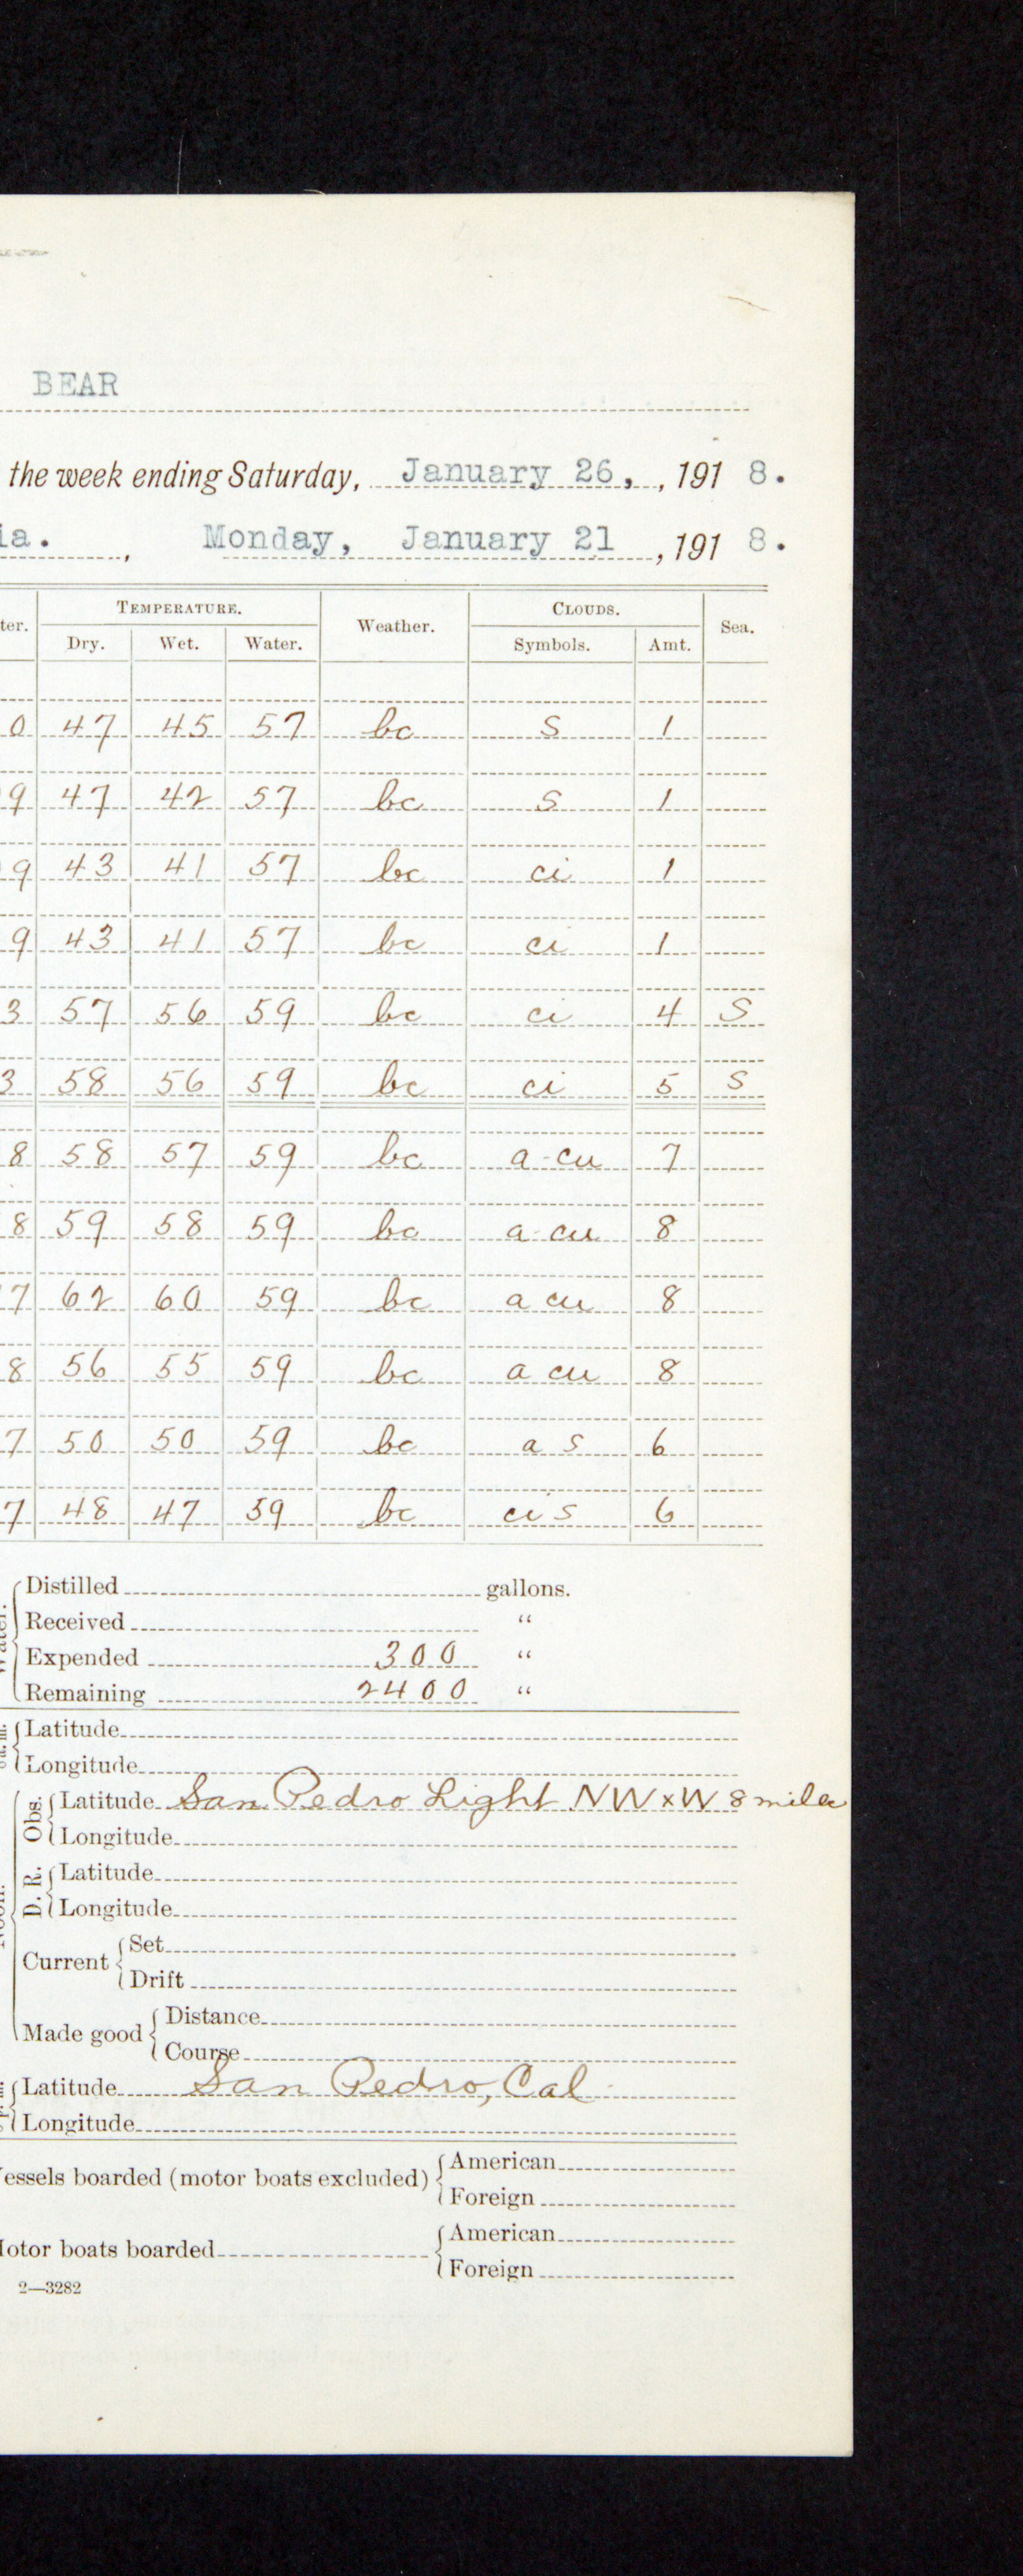 BEAR
the week ending Saturday, January 26, , 191 8.
ia. , Monday, January 21 , 191 8.
TEMPERATURE. CLOUDS.
ter. Dry. Wet. Water. Weather. Symbols. Amt. Sea.
0 47 45 57 bc S 1
9 47 42 57 bc S 1
9 43 41 57 bc ci 1
9 43 41 57 bc ci 1
3 57 56 59 bc ci 4 S
3 58 56 59 bc ci 5 S
8 58 57 59 bc a-cu 7
8 59 58 59 bc a-cu 8
7 62 60 59 bc a cu 8
8 56 55 59 bc a cu 8
7 50 50 59 bc a s 6
7 48 47 59 bc ci s 6
Distilled gallons.
Received "
Expended 300 "
Remaining 2400 "
Latitude
Longitude
Obs. Latitude San Pedro Light NW x W 8 miles
Longitude
D. R. Latitude
Longitude
Current Set
Drift
Made good Distance
Course
Latitude San Pedro, Cal
Longitude
essels boarded (motor boats excluded) American
Foreign
otor boats boarded American
Foreign
2—3282